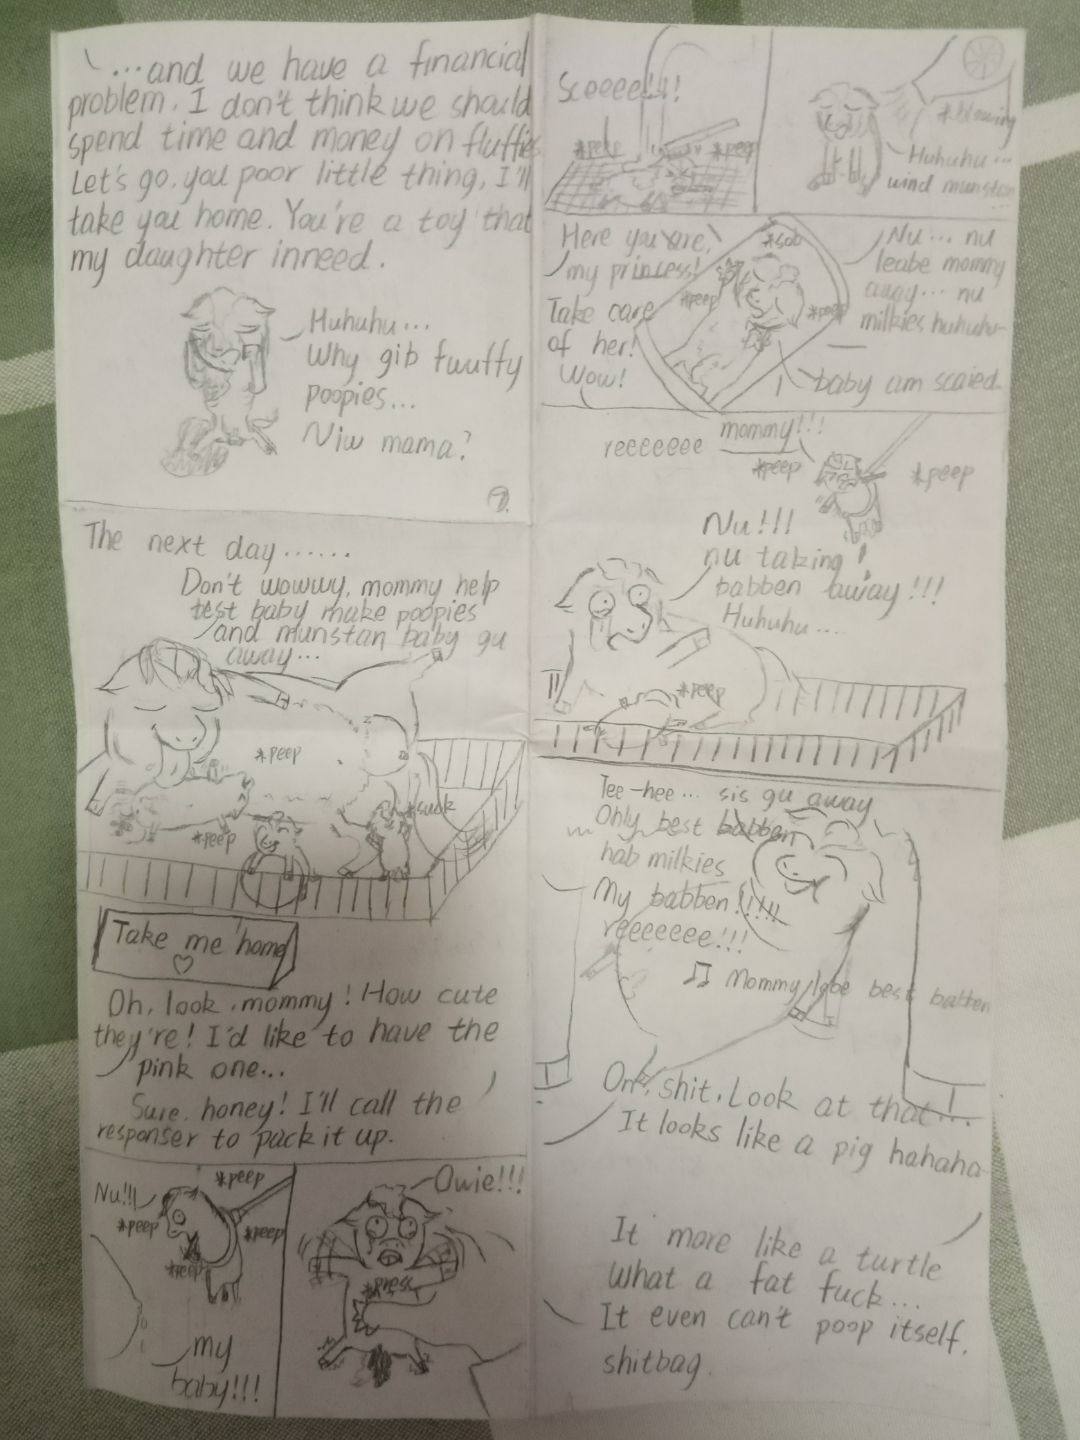 ...and we have a financial
problem. I don't think we should
spend time and money on fluffies
Let's go, you poor little thing, I'll
take you home. You're a toy that
my daughter inneed.
Huhuhu...
Why gib fwuffy
poopies...
Niw mama?
The next day......
Don't wowwy, mommy help
test baby make poopies
and munstan baby gu
away...
*peep
*suck
*peep
Take me home
Oh, look, mommy! How cute
they're! I'd like to have the
pink one...
Sure, honey! I'll call the
responser to pack it up.
Nu!!!
*peep
*peep
*peep
*peep
my
baby!!!
Owie!!!
*press
Sceeee!!!!
*peep
*peep
*blowing
Huhuhu...
wind munstan
...
Here you are,
my princess!
Take care
of her!
Wow!
*sob
*peep
*peep
Nu... nu
leabe mommy
away... nu
milkies huhuhu-
baby am scaied.
reeeeeee mommy!!!
*peep
*peep
Nu!!!
nu taking
babben away!!!
Huhuhu...
*peep
Tee-hee... sis gu away
Only best babben
hab milkies
My babben!!!!!
reeeeeee!!!
♫ Mommy lobe best batten
Oh, shit. Look at that...
It looks like a pig hahaha
It more like a turtle
What a fat fuck...
It even can't poop itself.
shitbag.